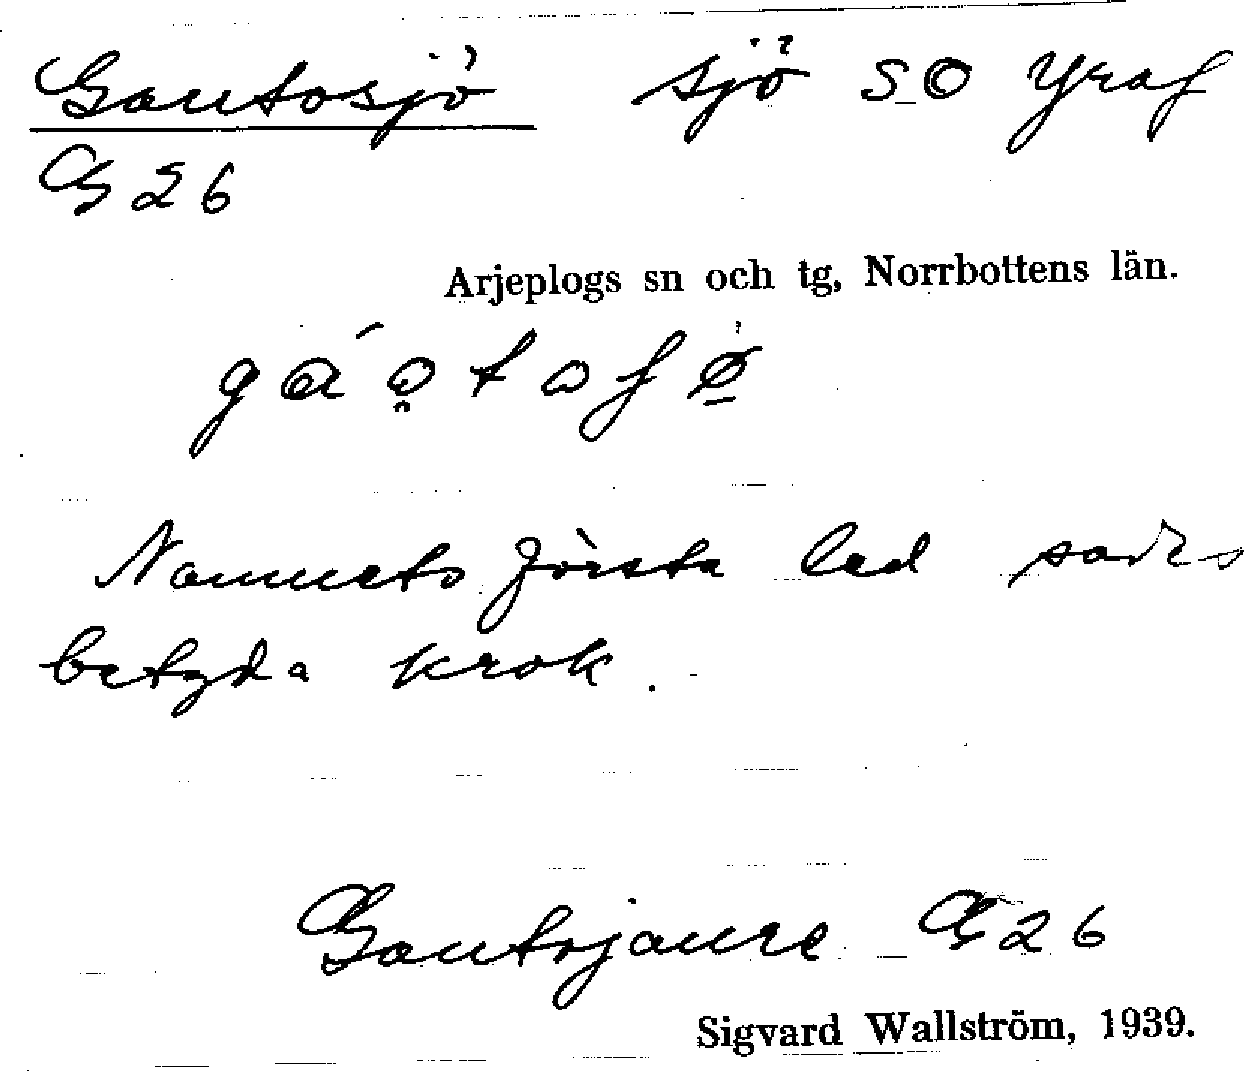 Gautosjö sjö SO Yraf
G 26
Arjeplogs sn och tg, Norrbottens län.
Namnets första led sades
betyda krok.
Gautojaure G 26
Sigvard Wallström, 1939.